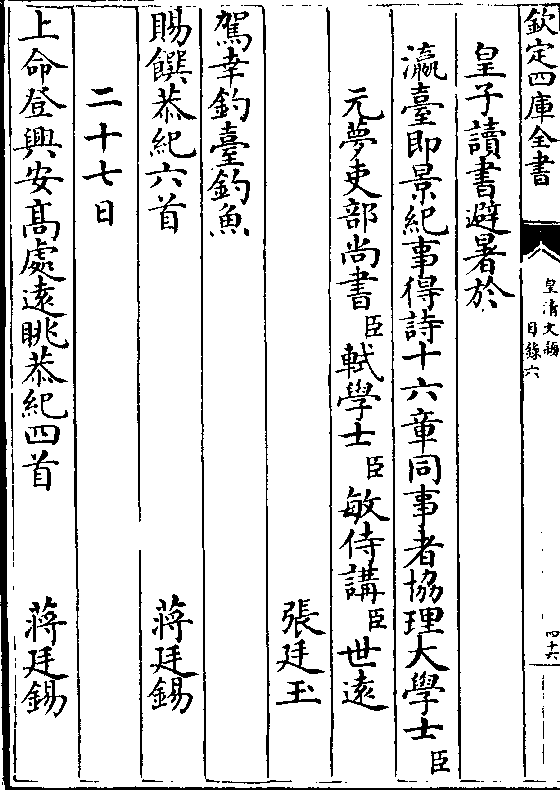 欽定四庫全書
皇清文穎
目錄六
四十六
皇子讀書避暑於
瀛臺即景紀事得詩十六章同事者協理大學士臣
元夢吏部尚書臣軾學士臣敏侍講臣世遠
張廷玉
駕幸釣臺釣魚
賜饌恭紀六首　蔣廷錫
二十七日
上命登興安高處遠眺恭紀四首　蔣廷錫